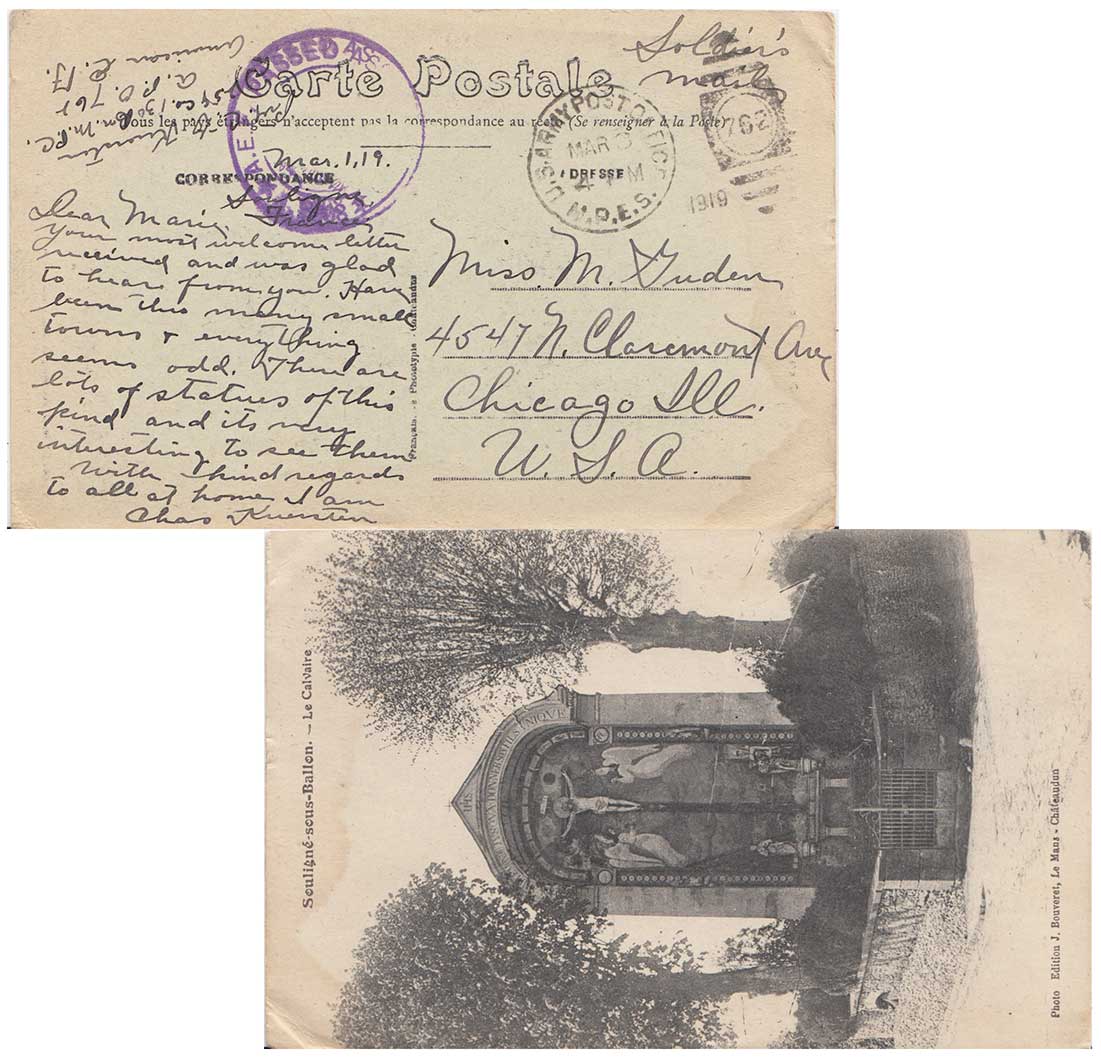 Soldier's
mail
Carte Postale
Tous les pays étrangers n'acceptent pas la correspondance au recto (Se renseigner à la Poste)
A.E.F. PASSED AS
Pvt. M. P. C.
A. P. O. 762
American E. F.
U.S. ARMY POST OFFICE
MAR 3
4 PM
M.P.E.S.
762
1919
CORRESPONDANCE
ADRESSE
Mar. 1, 19.
France
Dear Marie,
Your most welcome letter
received and was glad
to hear from you. Have
been thru many small
towns & everything
seems odd. There are
lots of statues of this
kind and its very
interesting to see them
With kind regards
to all at home I am
Chas Kuersten
Phototypie
Miss. M. Guden
4547 N. Claremont Ave
Chicago Ill.
U. S. A.
Souligné-sous-Ballon. — Le Calvaire
Photo Edition J. Bouveret, Le Mans - Châteaudun